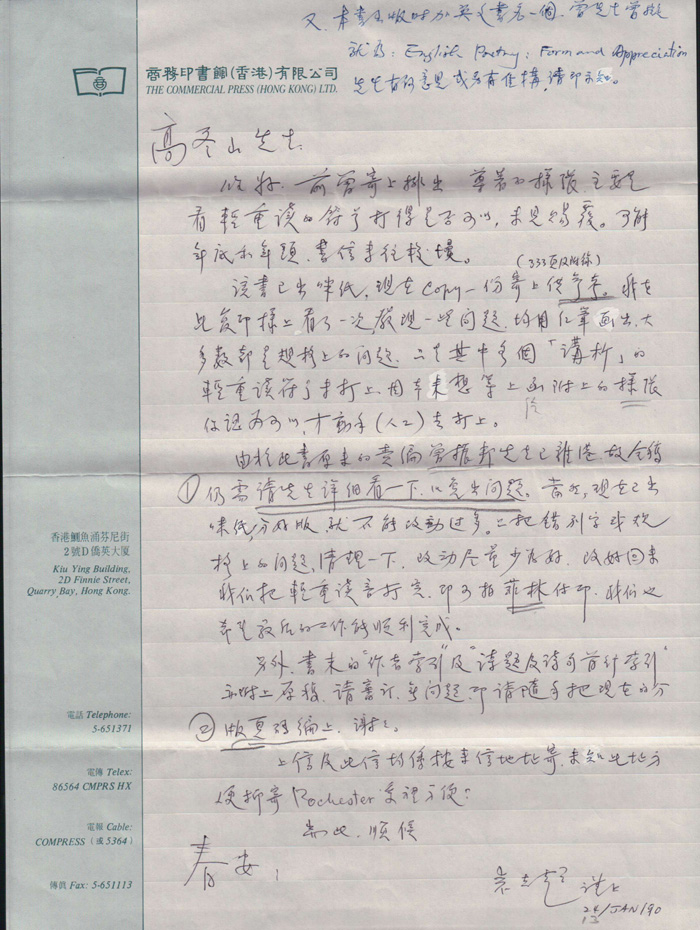 又,本書出版時加英文書名一個,曾先生曾擬
就為:English Poetry: Form and Appreciation
先生有何意見或另有佳構,請即示知。
商務印書館(香港)有限公司
THE COMMERCIAL PRESS (HONG KONG) LTD.
高冬山先生
你好。前曾寄上排出尊著的樣張,主要是
看輕重讀的符号打得是否可以,未見賜覆。了解
年底和年頭,書信來往較慢。
(333頁及附錄)
該書已出咪紙,現在Copy一份寄上供參考。我在
此复印樣上看了一次,發現一些問題,均用红筆画出,大
多數都是規格上的問題,只是其中多個「講析」的
輕重讀符号未打上,因本來想等上函附上的樣張
你認為可以,才動手(人工)去打上。
由於此書原來的責编曾振邦先生已離港,故全稿
① 仍需請先生詳細看一下,以免出問題。當然,現在已出
咪紙,分好版,就不能改動過多,只把错别字或規
格上的問題,清理一下,改動尽量少為好,改好回來
我们把輕重讀音打完,即可拍菲林付印,我们也
希望最后的工作能順利完成。
另外,書末的"作者索引"及"詩題及詩句首行索引"
亦附上原稿,請審訂,無問題,即請随手把現在的分
② 版頁码編上,謝謝。
上信及此信均係按來信地址寄,未知此地方
便抑寄Rochester家裡方便?
耑此,順候
春安!
袁 謹上
24/JAN/90
香港鰂魚涌芬尼街
2號D僑英大厦
Kiu Ying Building,
2D Finnie Street,
Quarry Bay, Hong Kong.
電話 Telephone:
5-651371
電傳 Telex:
86564 CMPRS HX
電報 Cable:
COMPRESS(或5364)
傳真 Fax: 5-651113